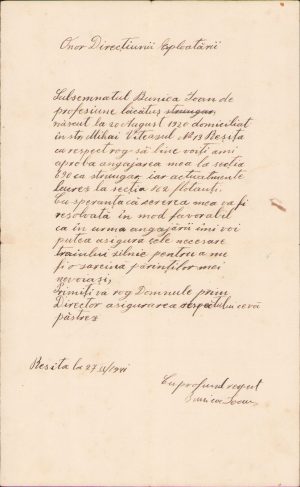 Onor Direcțiunii Exploatării
Subsemnatul Bunica Ioan de
profesiune lăcătuș strungar,
născut la 20 August 1920 domiciliat
în str. Mihai Viteasul № 13 Reșița
cu respect rog să bine voiți a mi
aproba angajarea mea la secția
830 ca strungar, iar actualmente
lucrez la secția 262
Cu speranța că cererea mea va fi
resolvată în mod favorabil
ca în urma angajării îmi voi
putea asigura cele necesare
traiului zilnic pentru a nu
fi o sarcina părinților mei
nevoiași,
Primiți vă rog Domnule prim
Director asigurarea respectului ce vă
păstrez
Reșița la 27 1941
Cu profund respect
Bunica Ioan